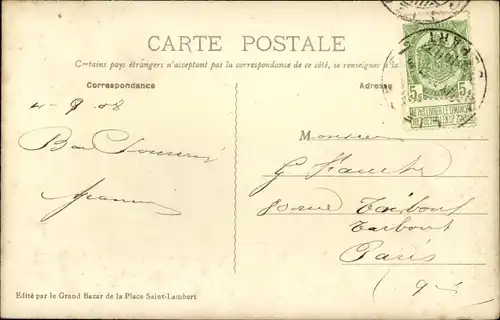 CARTE POSTALE
Certains pays étrangers n'acceptant pas la correspondance de ce côté, se renseigner à la
Correspondance
Adresse
4-9-08
Bon Souvenir
Jeanne
Monsieur
G
80 rue Taitbout
Tarbout
Paris
(9e)
5c 5c
NE PAS LIVRER LE DIMANCHE
PARI
Edité par le Grand Bazar de la Place Saint-Lambert